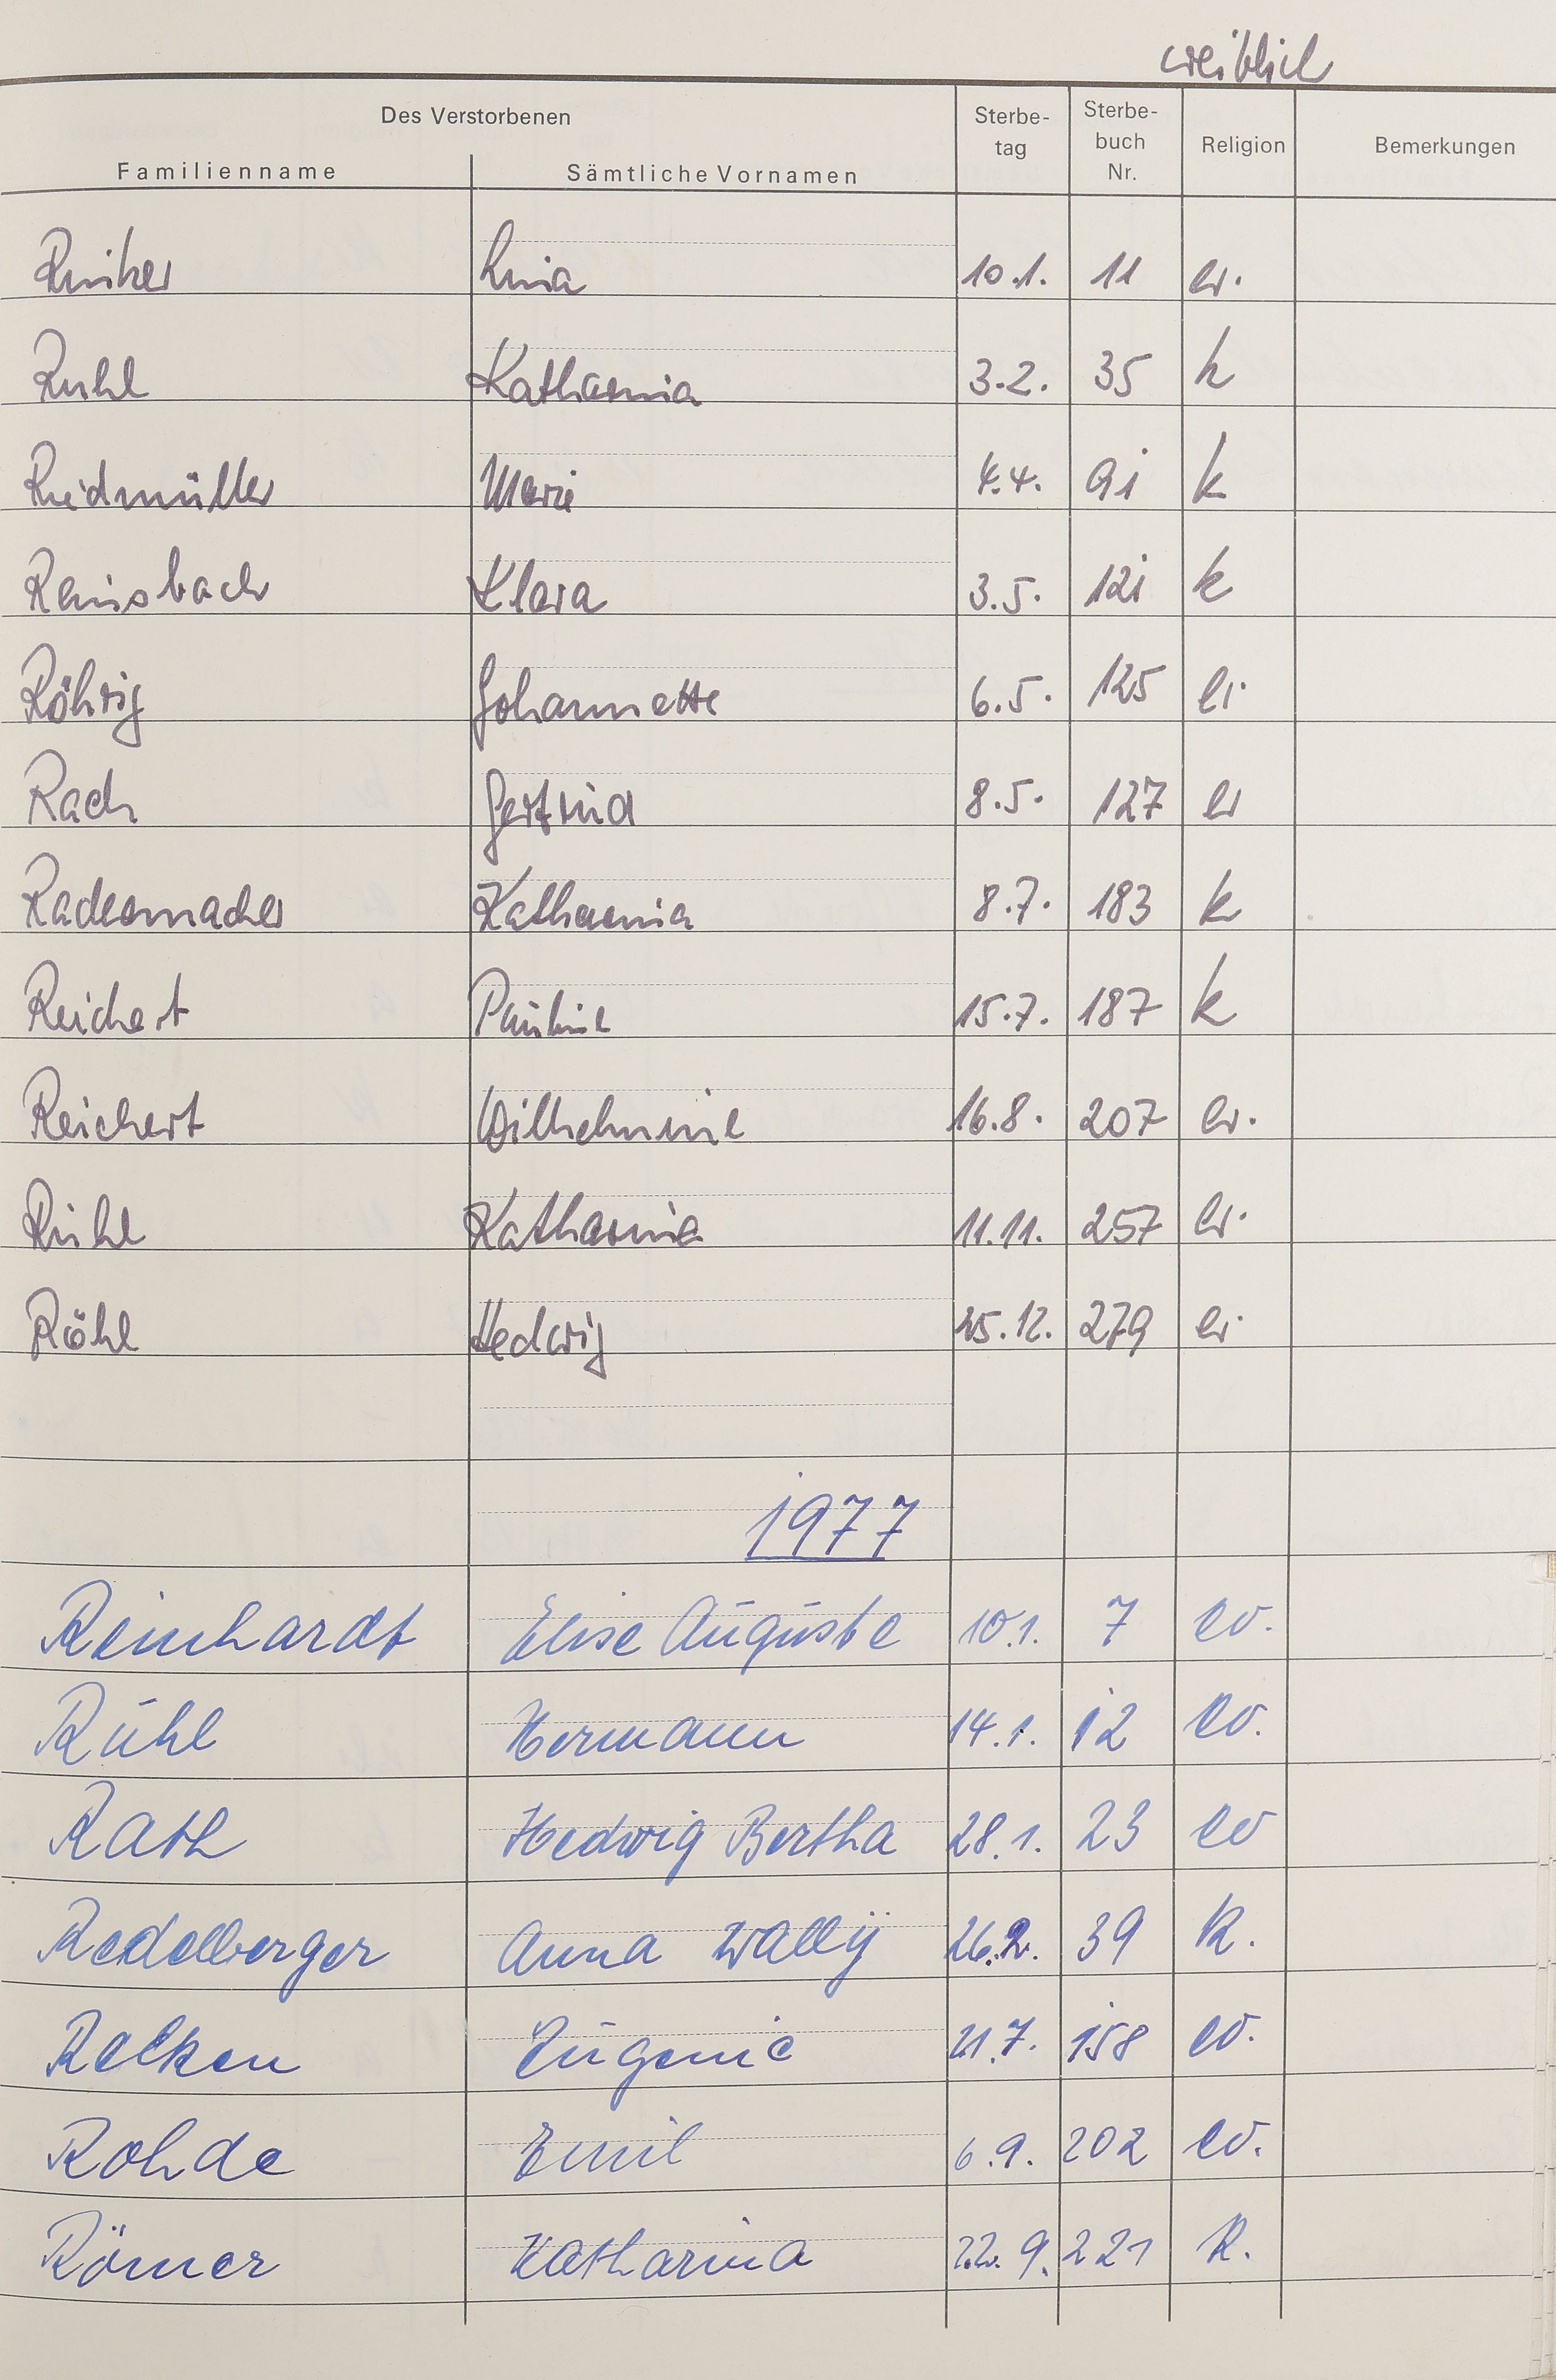 weiblich
Des Verstorbenen
Familienname Sämtliche Vornamen Sterbe-tag Sterbe-buch Nr. Religion Bemerkungen
10.1. 11 ev.
Ruhl Katharina 3.2. 35 k
Riedmüller Marie 4.4. 91 k
Rainsbach Klara 3.5. 121 k
Röhrig Johannette 6.5. 125 ev.
Rach Gertrud 8.5. 127 ev
Rademacher Katharina 8.7. 183 k
Reichert Pauline 15.7. 187 k
Reichert Wilhelmine 16.8. 207 ev.
Rühl Katharina 11.11. 257 ev.
Röhl Hedwig 25.12. 279 ev.
1977
Reinhardt Elise Auguste 10.1. 7 ev.
Rühl Hermann 14.1. 12 ev.
Rath Hedwig Bertha 28.1. 23 ev
Redelberger Anna Wally 26.2. 39 k.
Relken Eugenie 21.7. 158 ev.
Rohde Emil 6.9. 202 ev.
Römer Katharina 22.9. 221 k.